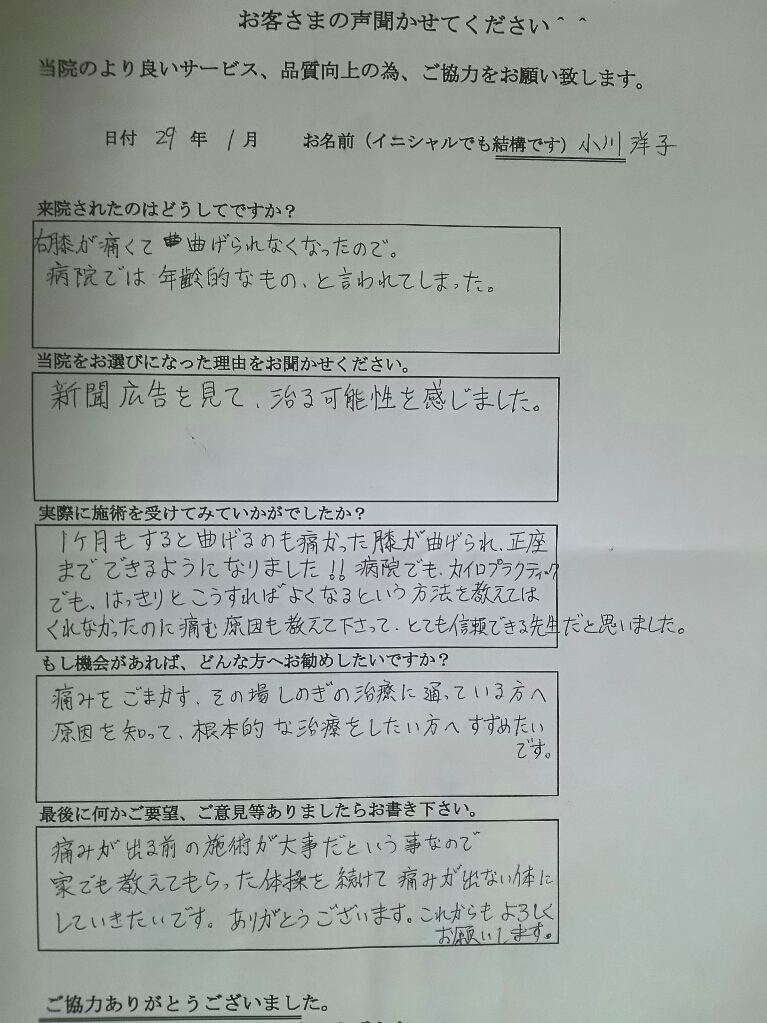 お客さまの声聞かせてください＾＾
当院のより良いサービス、品質向上の為、ご協力をお願い致します。
日付 29 年 1月 お名前（イニシャルでも結構です）小川 洋子
来院されたのはどうしてですか？
右膝が痛くて 曲げられなくなったので。
病院では 年齢的なもの、と言われてしまった。
当院をお選びになった理由をお聞かせください。
新聞広告を見て、治る可能性を感じました。
実際に施術を受けてみていかがでしたか？
1ヶ月もすると曲げるのも痛かった膝が曲げられ、正座
までできるようになりました!! 病院でも、カイロプラクティック
でも、はっきりとこうすればよくなるという方法を教えては
くれなかったのに痛む原因も教えて下さって、とても信頼できる先生だと思いました。
もし機会があれば、どんな方へお勧めしたいですか？
痛みをごまかす、その場しのぎの治療に通っている方へ
原因を知って、根本的な治療をしたい方へすすめたい
です。
最後に何かご要望、ご意見等ありましたらお書き下さい。
痛みが出る前の施術が大事だという事なので
家でも教えてもらった体操を続けて痛みが出ない体に
していきたいです。ありがとうございます。これからもよろしく
お願いします。
ご協力ありがとうございました。